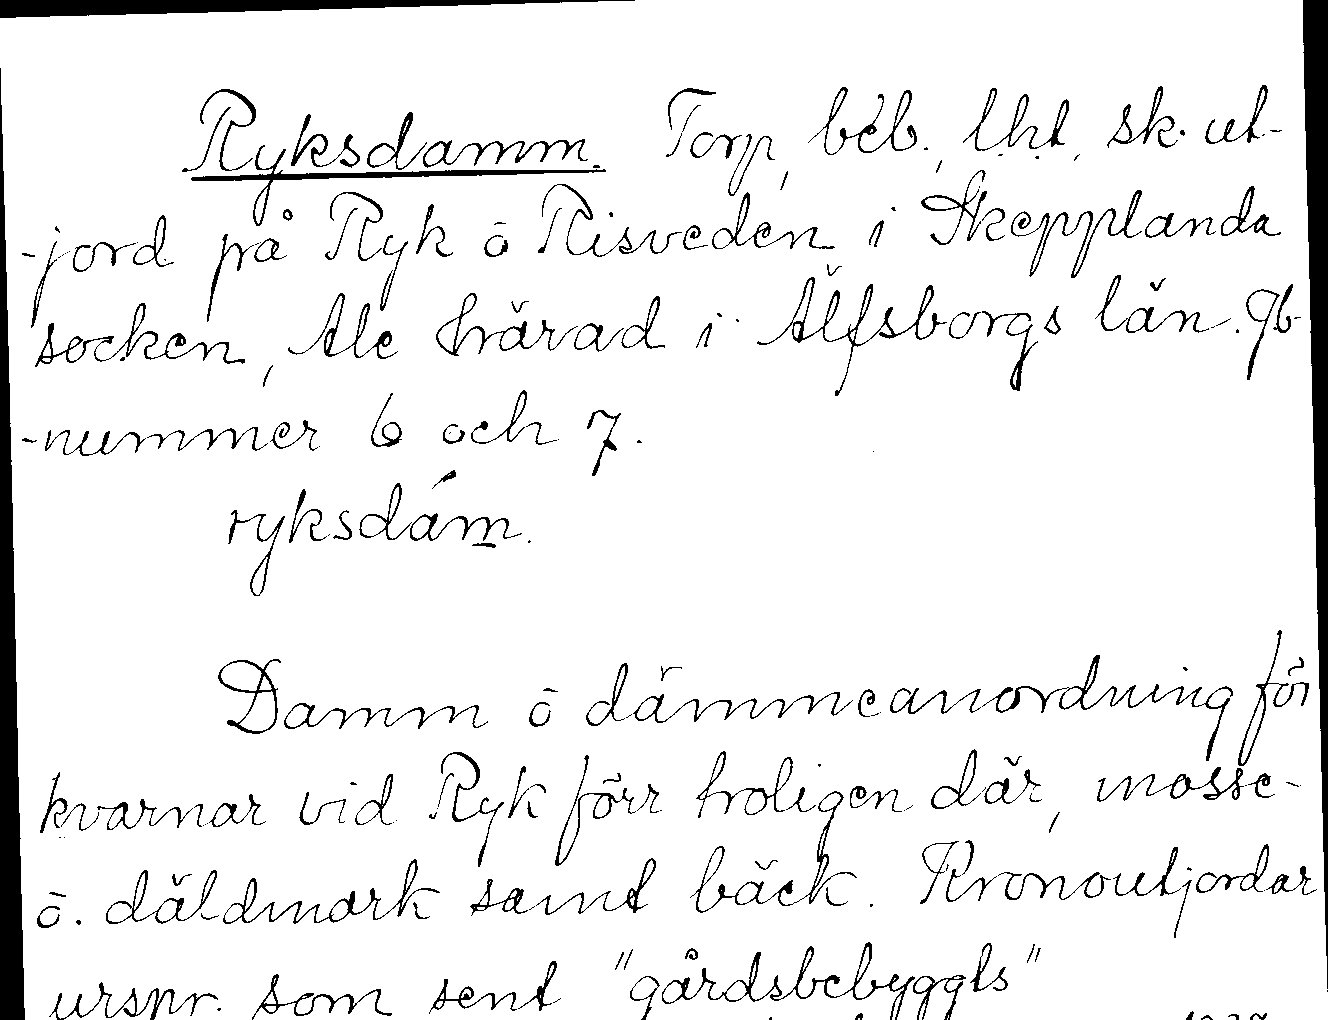 Ryksdamm. Torp, beb., lht, sk. ut-
-jord på Ryk ō Risveden i Skepplanda
socken, Ale härad i Älfsborgs län. Jb-
-nummer 6 och 7.
ryksdám.
Damm ō dämmeanordning för
kvarnar vid Ryk förr troligen där, mosse-
ō. däldmark samt bäck. Kronoutjordar
urspr. som sent "gårdsbebyggts"